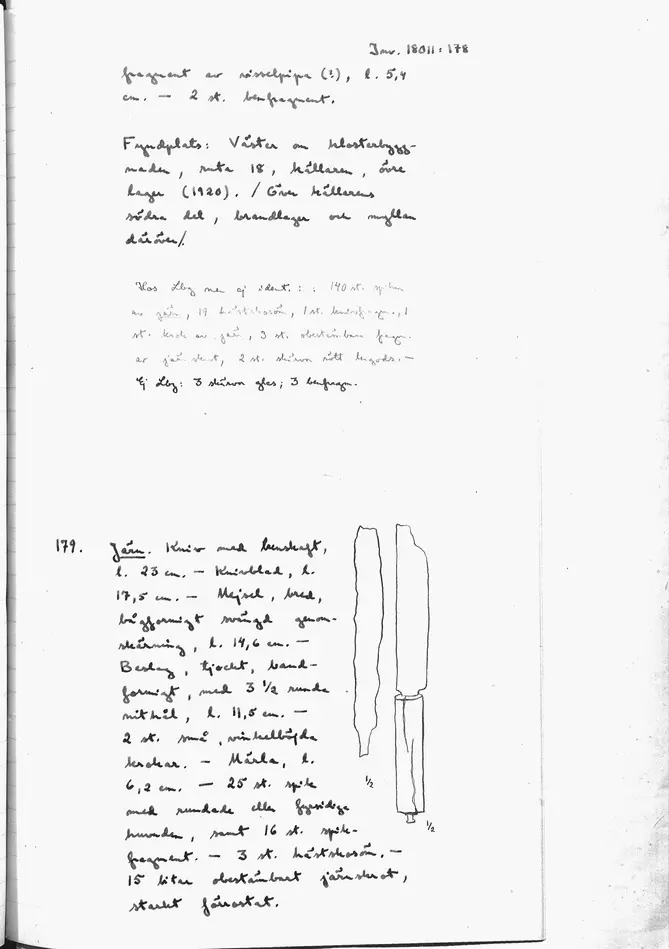 Inv. 18011:178
fragment av visselpipa (?), l. 5,4
cm. — 2 st. benfragment.
Fyndplats: Väster om klosterbygg-
naden, ruta 18, källaren, övre
lager (1920). /Över källarens
södra del, brandlager och myllan
däröver/.
Hos Lbg men ej ident.: : 140 st. spikar
av järn, 19 hästskosöm, 1 st. knivfragm., 1
st. krok av järn, 3 st. obestämbara fragm.
av järnskrot, 2 st. skärvor rött lergods. —
Ej Lbg: 3 skärvor glas; 3 benfragm.
179. Järn. Kniv med benskaft,
l. 23 cm. — Knivblad, l.
17,5 cm. — Mejsel, bred,
bågformigt svängd genom-
skärning, l. 14,6 cm. —
Beslag, tjockt, band-
formigt, med 3 1/2 runda
nithål, l. 11,5 cm. —
2 st. små, vinkelböjda
krokar. — Märla, l.
6,2 cm. — 25 st. spik
med rundade eller fyrsidiga
huvuden, samt 16 st. spik-
fragment. — 3 st. hästskosöm. —
15 bitar obestämbart järnskrot,
starkt förrostat.
1/2
1/2